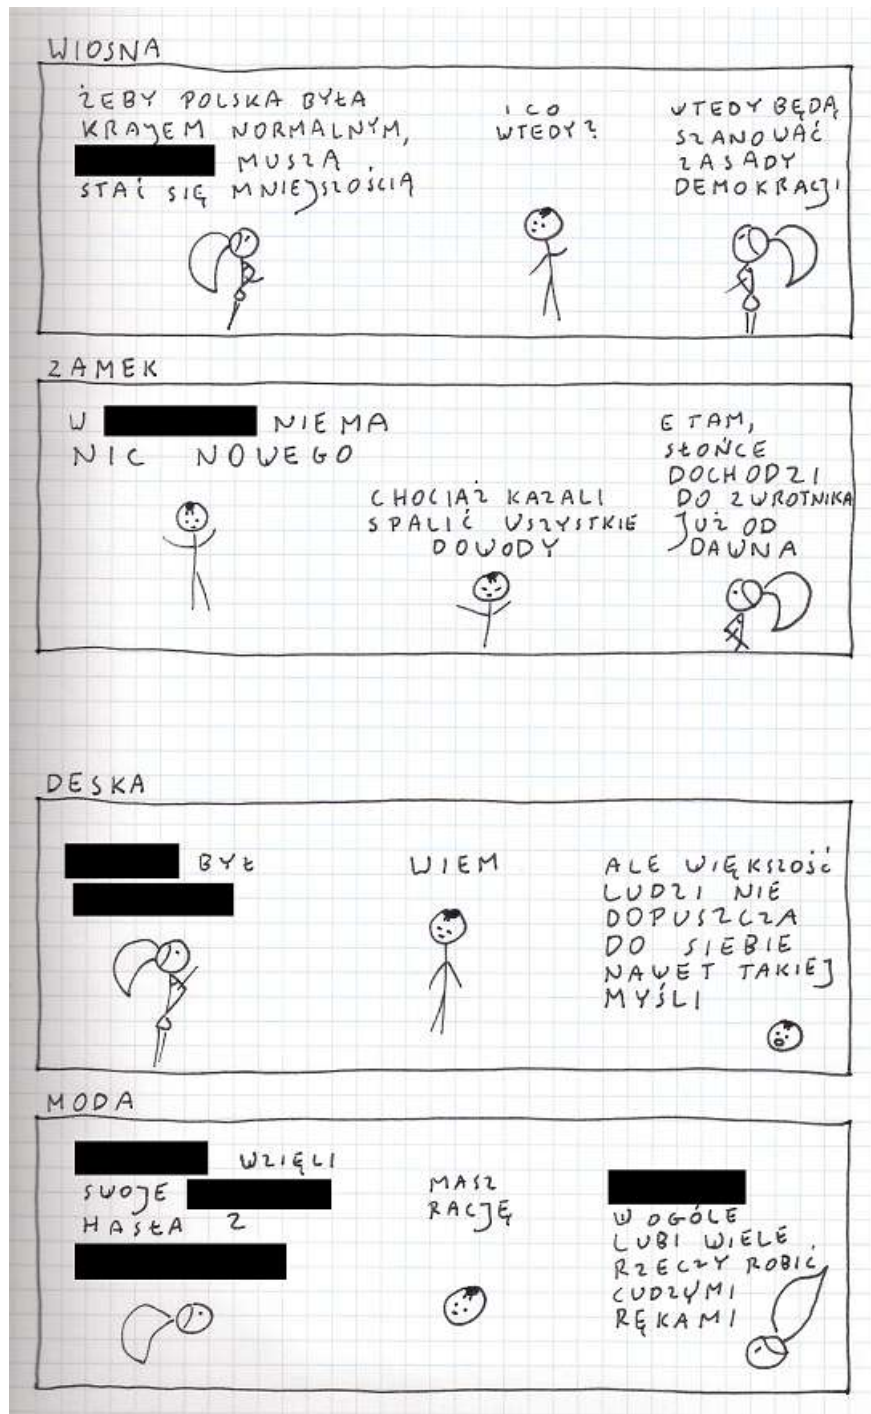 WIOSNA
ŻEBY POLSKA BYŁA
KRAJEM NORMALNYM,
MUSZĄ
STAĆ SIĘ MNIEJSZOŚCIĄ
I CO
WTEDY?
WTEDY BĘDĄ
SZANOWAĆ
ZASADY
DEMOKRACJI
ZAMEK
W NIE MA
NIC NOWEGO
CHOCIAŻ KAZALI
SPALIĆ WSZYSTKIE
DOWODY
E TAM,
SŁOŃCE
DOCHODZI
DO ZWROTNIKA
JUŻ OD
DAWNA
DESKA
BYŁ
WIEM
ALE WIĘKSZOŚĆ
LUDZI NIE
DOPUSZCZA
DO SIEBIE
NAWET TAKIEJ
MYŚLI
MODA
WZIĘLI
SWOJE
HASŁA Z
MASZ
RACJĘ
W OGÓLE
LUBI WIELE
RZECZY ROBIĆ
CUDZYMI
RĘKAMI